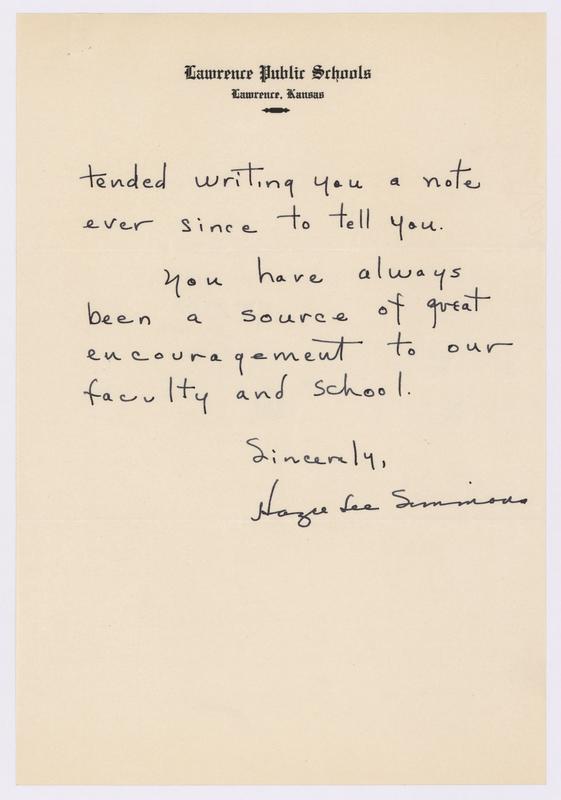 Lawrence Public Schools
Lawrence, Kansas
tended writing you a note
ever since to tell you.
You have always
been a source of great
encouragement to our
faculty and school.
Sincerely,
Lee Simmons